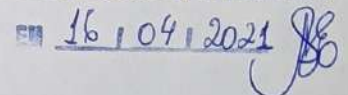 EM 16 / 04 / 2021